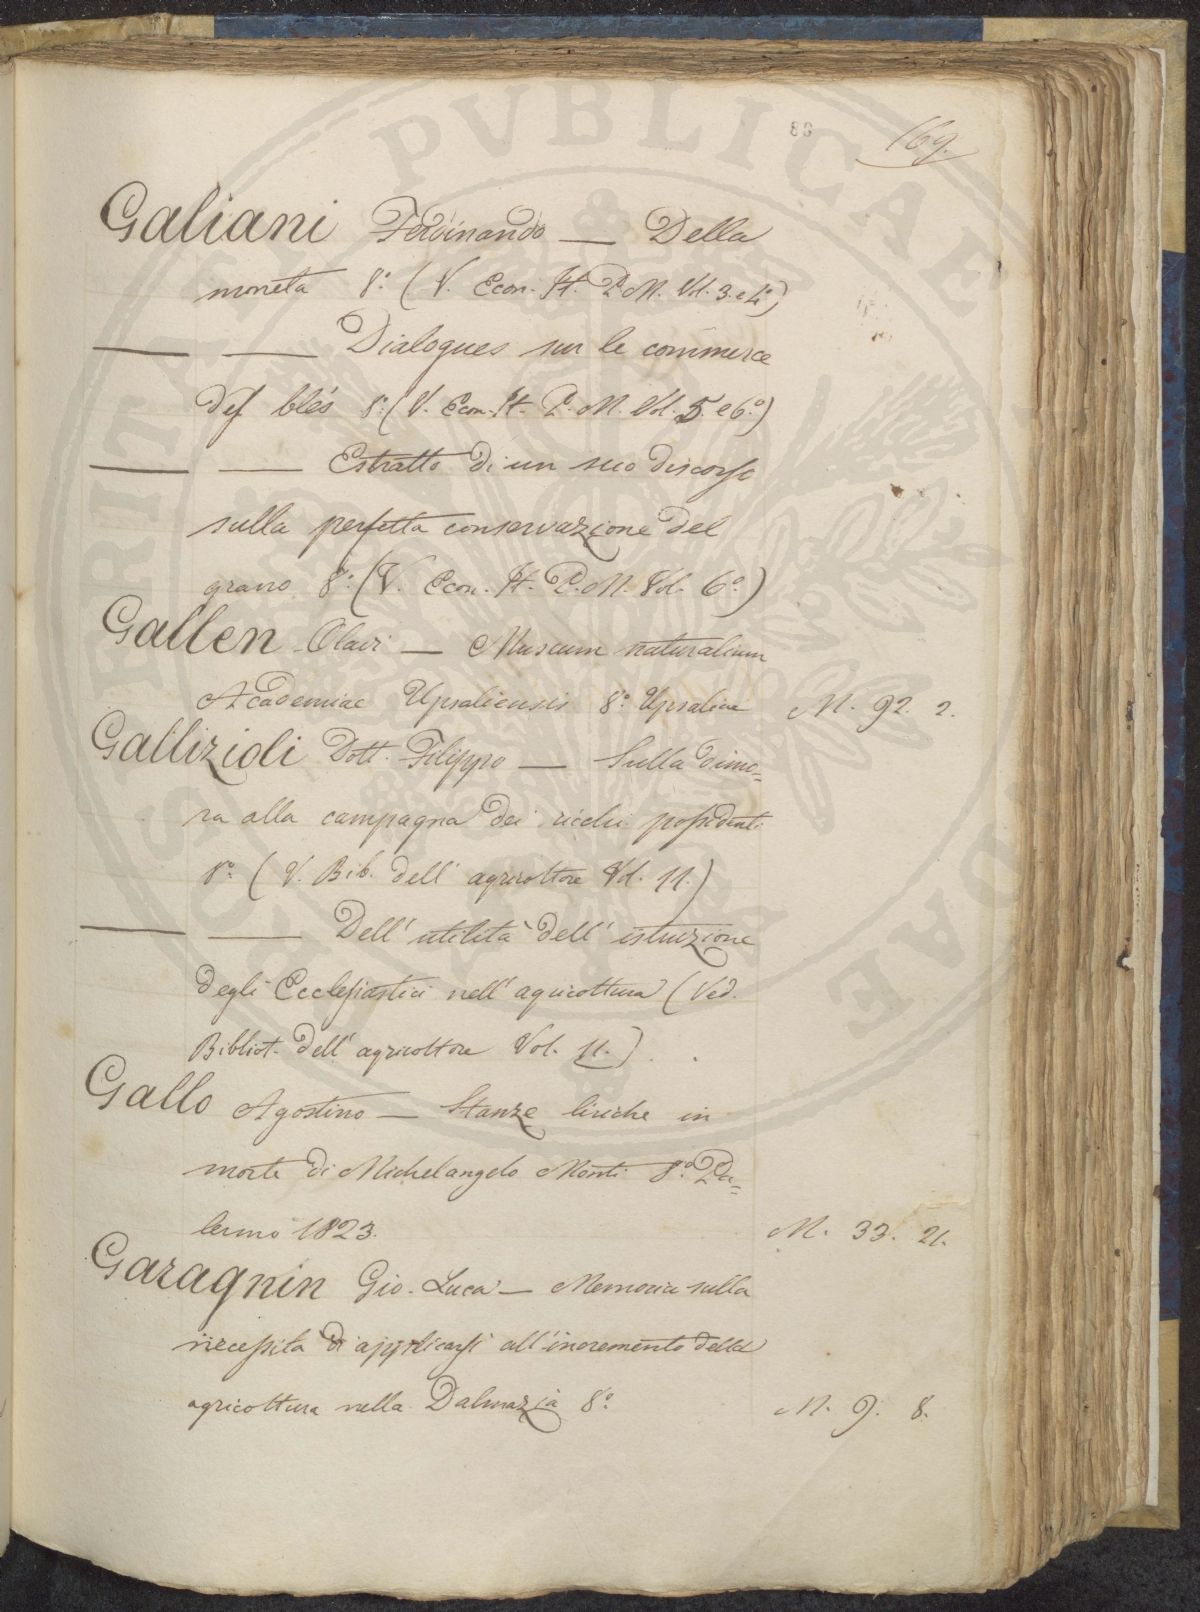 169.
Galiani Ferdinando — Della
moneta 8.° (V. Econ. It. P. M. Vol. 3. e 4.°)
— — Dialogues sur le commerce
des blés 8.° (V. Econ. It. P. M. Vol. 5. e 6.°)
— — Estratto di un suo discorso
sulla perfetta conservazione del
grano 8.° (V. Econ. It. P. M. Vol. 6.°)
Gallen Olavi — Museum naturalium
Academiae Upsaliensis 8.° Upsaliae M. 92. 2.
Gallizioli Dott. Filippo — Sulla dimo=
ra alla campagna dei ricchi possidenti
8.° (V. Bib. dell' agricoltore Vol. 11.)
— — Dell' utilità dell' istruzione
degli Ecclesiastici nell' agricoltura (Ved.
Bibliot. dell' agricoltore Vol. 11.)
Gallo Agostino — Stanze liriche in
morte di Michelangelo Monti 8.° Pa=
lermo 1823. M. 33. 21.
Garagnin Gio. Luca — Memoria sulla
necessità di applicarsi all' incremento della
agricoltura nella Dalmazia 8.° M. 9. 8.